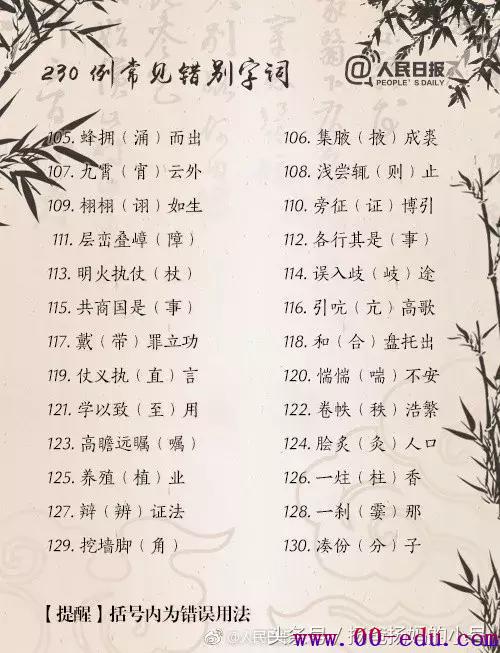 230例常见错别字词
@人民日报
PEOPLE'S DAILY
105. 蜂拥（涌）而出
106. 集腋（掖）成裘
107. 九霄（宵）云外
108. 浅尝辄（则）止
109. 栩栩（诩）如生
110. 旁征（证）博引
111. 层峦叠嶂（障）
112. 各行其是（事）
113. 明火执仗（杖）
114. 误入歧（岐）途
115. 共商国是（事）
116. 引吭（亢）高歌
117. 戴（带）罪立功
118. 和（合）盘托出
119. 仗义执（直）言
120. 惴惴（喘）不安
121. 学以致（至）用
122. 卷帙（秩）浩繁
123. 高瞻远瞩（嘱）
124. 脍炙（灸）人口
125. 养殖（植）业
126. 一炷（柱）香
127. 辩（辨）证法
128. 一刹（霎）那
129. 挖墙脚（角）
130. 凑份（分）子
【提醒】括号内为错误用法
www.00-edu.com